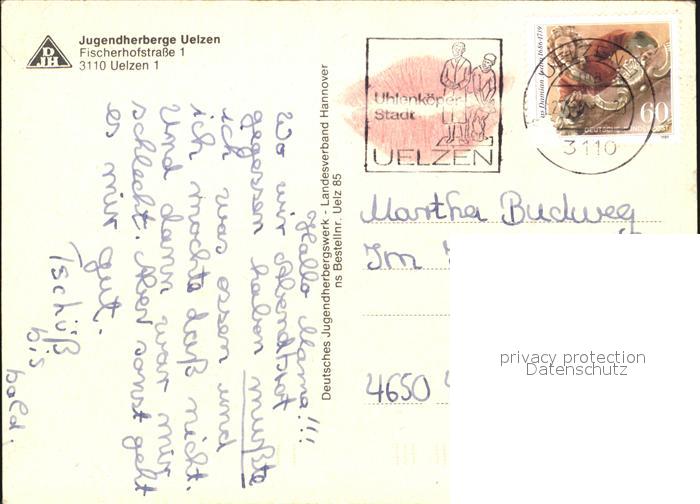 DJH
Jugendherberge Uelzen
Fischerhofstraße 1
3110 Uelzen 1
Hallo Mama!!!
Wo wir Abendbrot
gegessen haben mußte
ich was essen und
ich mochte daß nicht.
Und dann war mir
schlecht. Aber sonst geht
es mir gut.
Tschüß
bis
bald.
Deutsches Jugendherbergswerk - Landesverband Hannover
ns Bestellnr. Uelz 85
Uhlenköper
Stadt
UELZEN
UELZEN
3110
us Damian Asam 1686-1739
60
DEUTSCHE BUNDESPOST
Martha Budweg
Im
4650
privacy protection
Datenschutz